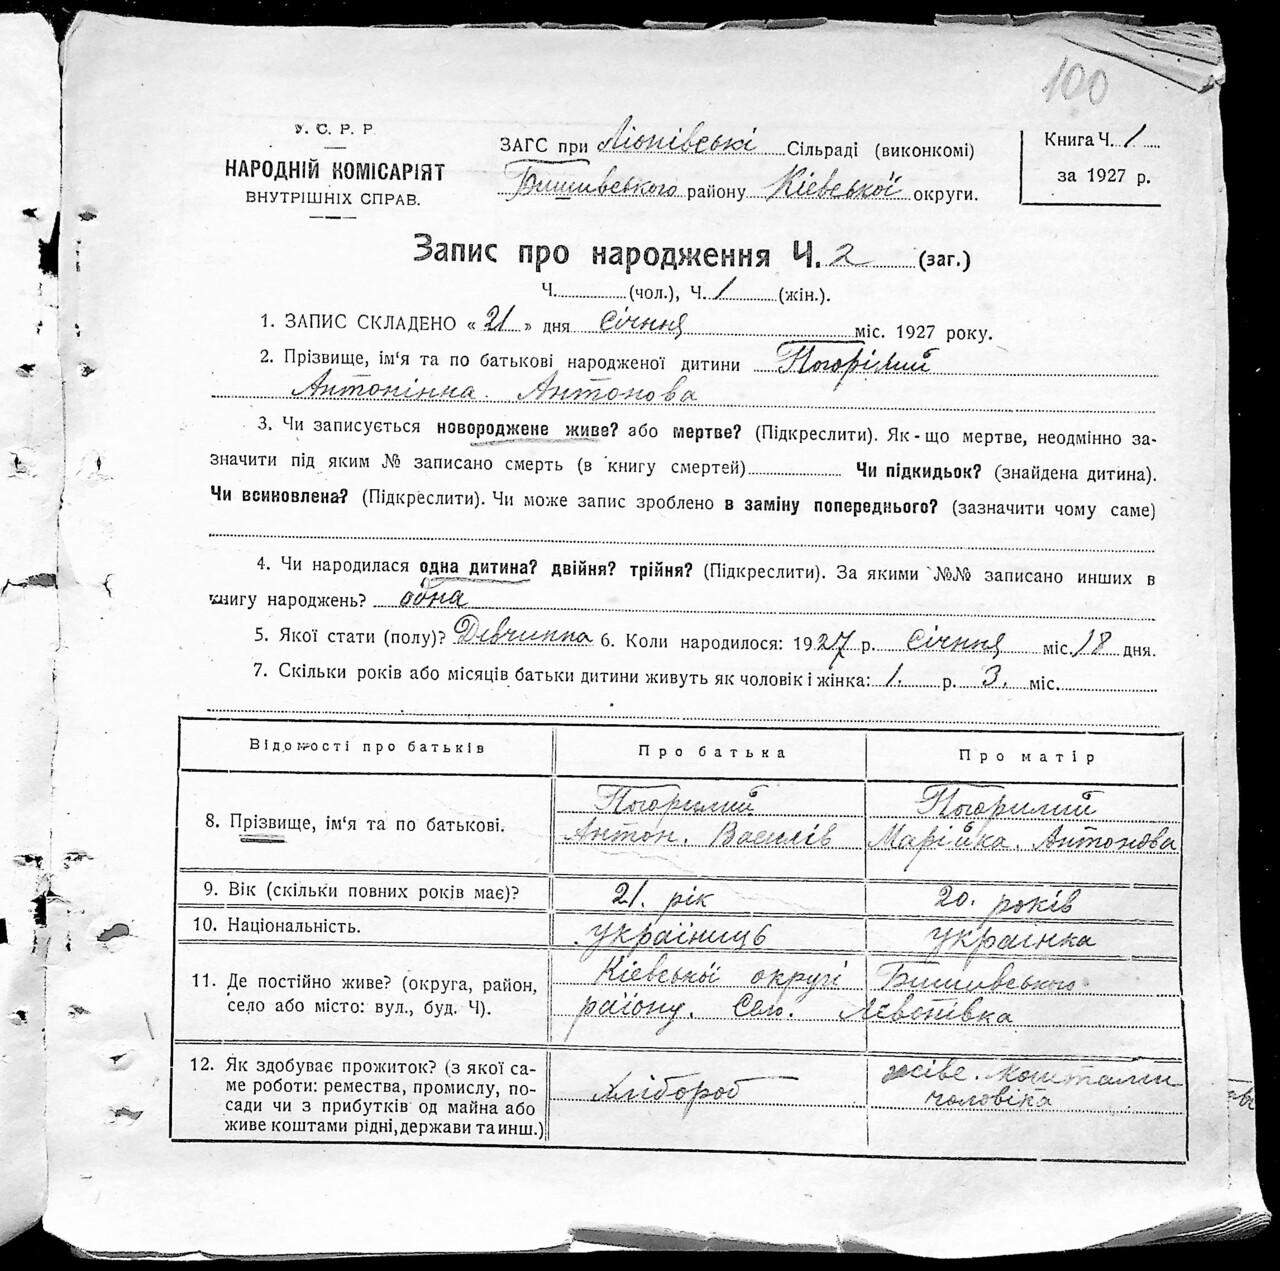 100
У. С. Р. Р.
НАРОДНІЙ КОМІСАРІЯТ
ВНУТРІШНІХ СПРАВ.
ЗАГС при Ліонівські Сільраді (виконкомі)
Бишивського району Кіевськоі округи.
Книга Ч. 1
за 1927 р.
Запис про народження Ч. 2 (заг.)
Ч. (чол.), Ч. 1 (жін.).
1. ЗАПИС СКЛАДЕНО « 21 » дня Січння міс. 1927 року.
2. Прізвище, ім'я та по батькові народженої дитини Погорілий
Антонінна. Антонова
3. Чи записується новороджене живе? або мертве? (Підкреслити). Як-що мертве, неодмінно за-
значити під яким № записано смерть (в книгу смертей) Чи підкидьок? (знайдена дитина).
Чи всиновлена? (Підкреслити). Чи може запис зроблено в заміну попереднього? (зазначити чому саме)
4. Чи народилася одна дитина? двійня? трійня? (Підкреслити). За якими №№ записано инших в
книгу народжень? одна
5. Якої стати (полу)? Дівчинна 6. Коли народилося: 1927 р. січння міс. 18 дня.
7. Скільки років або місяців батьки дитини живуть як чоловік і жінка: 1. р. 3. міс.
Відомості про батьків
Про батька
Про матір
8. Прізвище, ім'я та по батькові.
Погорилий
Антон. Василів
Погорилий
Марійка. Антонова
9. Вік (скільки повних років має)?
21. рік
20. років
10. Національність.
украіниць
украінка
11. Де постійно живе? (округа, район,
село або місто: вул., буд. Ч).
Кіевськоі округі Бишивського
району. Село. Лєвонівка
12. Як здобуває прожиток? (з якої са-
ме роботи: ремества, промислу, по-
сади чи з прибутків од майна або
живе коштами рідні, держави та инш.)
Хлібороб
живе. коштами
чоловіка